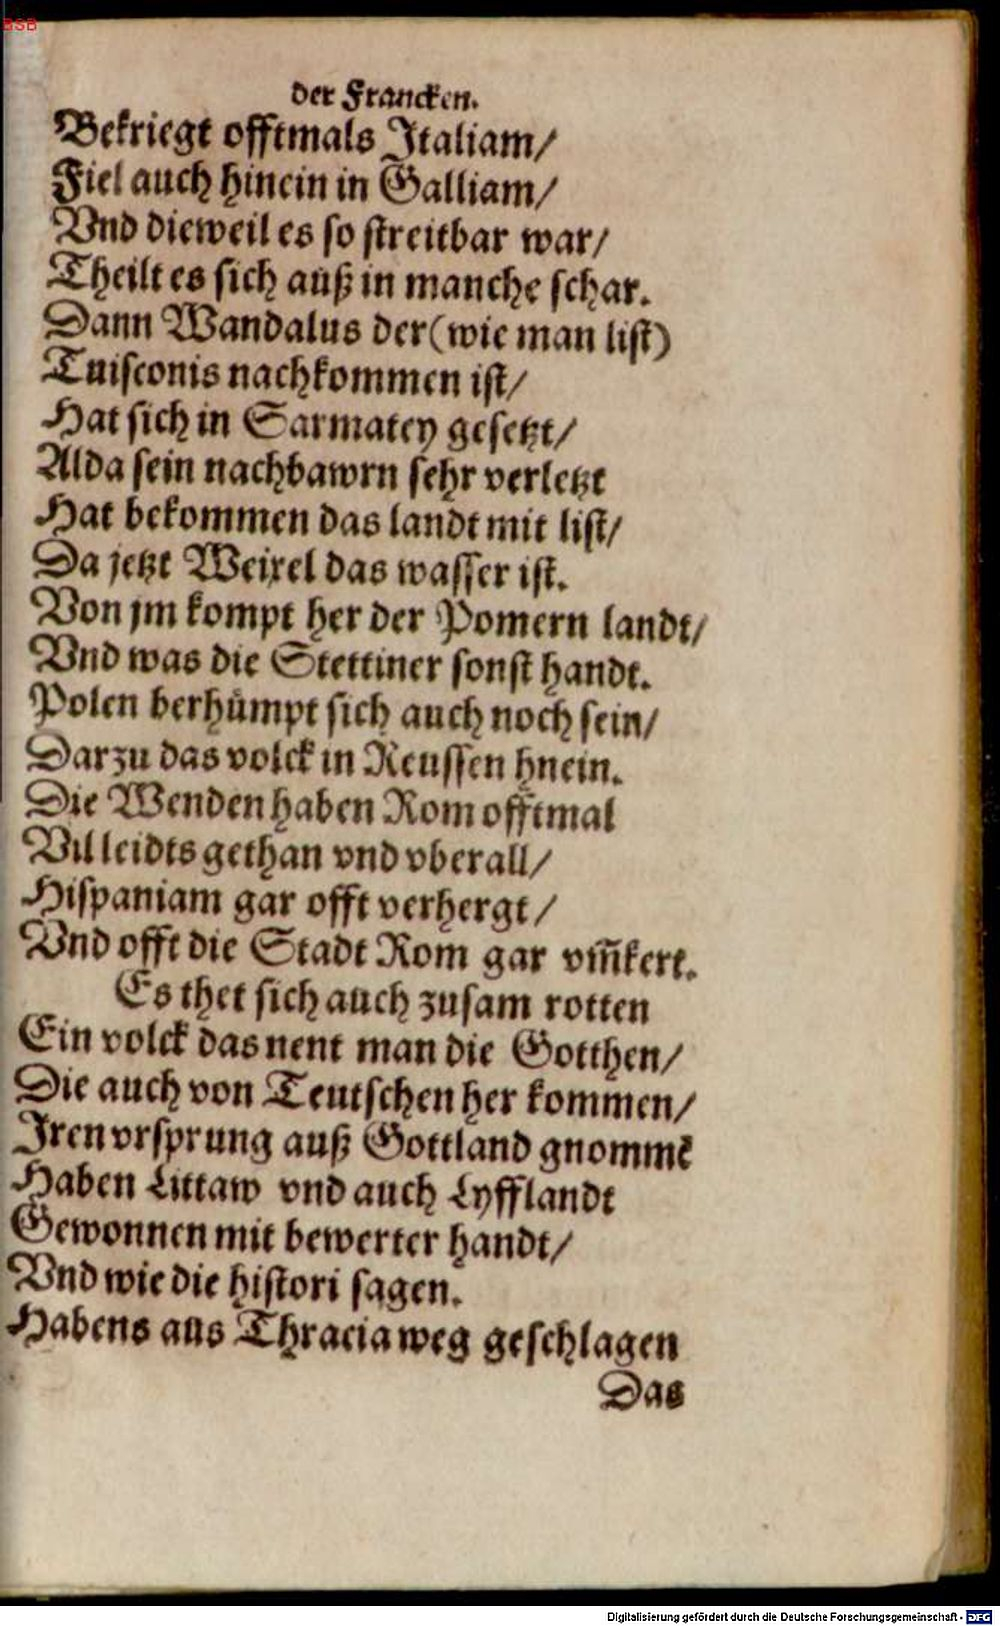 BSB
der Francken.
Bekriegt offtmals Italiam/
Fiel auch hinein in Galliam/
Vnd dieweil es so streitbar war/
Theilt es sich auß in manche schar.
Dann Wandalus der (wie man list)
Tuisconis nachkommen ist/
Hat sich in Sarmatey gesetzt/
Alda sein nachbawrn sehr verletzt
Hat bekommen das landt mit list/
Da jetzt Weixel das wasser ist.
Von jm kompt her der Pomern landt/
Vnd was die Stettiner sonst handt.
Polen berhuͤmpt sich auch noch sein/
Darzu das volck in Reussen hnein.
Die Wenden haben Rom offtmal
Vil leidts gethan vnd vberall/
Hispaniam gar offt verhergt/
Vnd offt die Stadt Rom gar vm̃kert.
Es thet sich auch zusam rotten
Ein volck das nent man die Gotthen/
Die auch von Teutschen her kommen/
Jren vrsprung auß Gottland gnommẽ
Haben Littaw vnd auch Lyfflandt
Gewonnen mit bewerter handt/
Vnd wie die histori sagen.
Habens aus Thracia weg geschlagen
Das
Digitalisierung gefördert durch die Deutsche Forschungsgemeinschaft - DFG